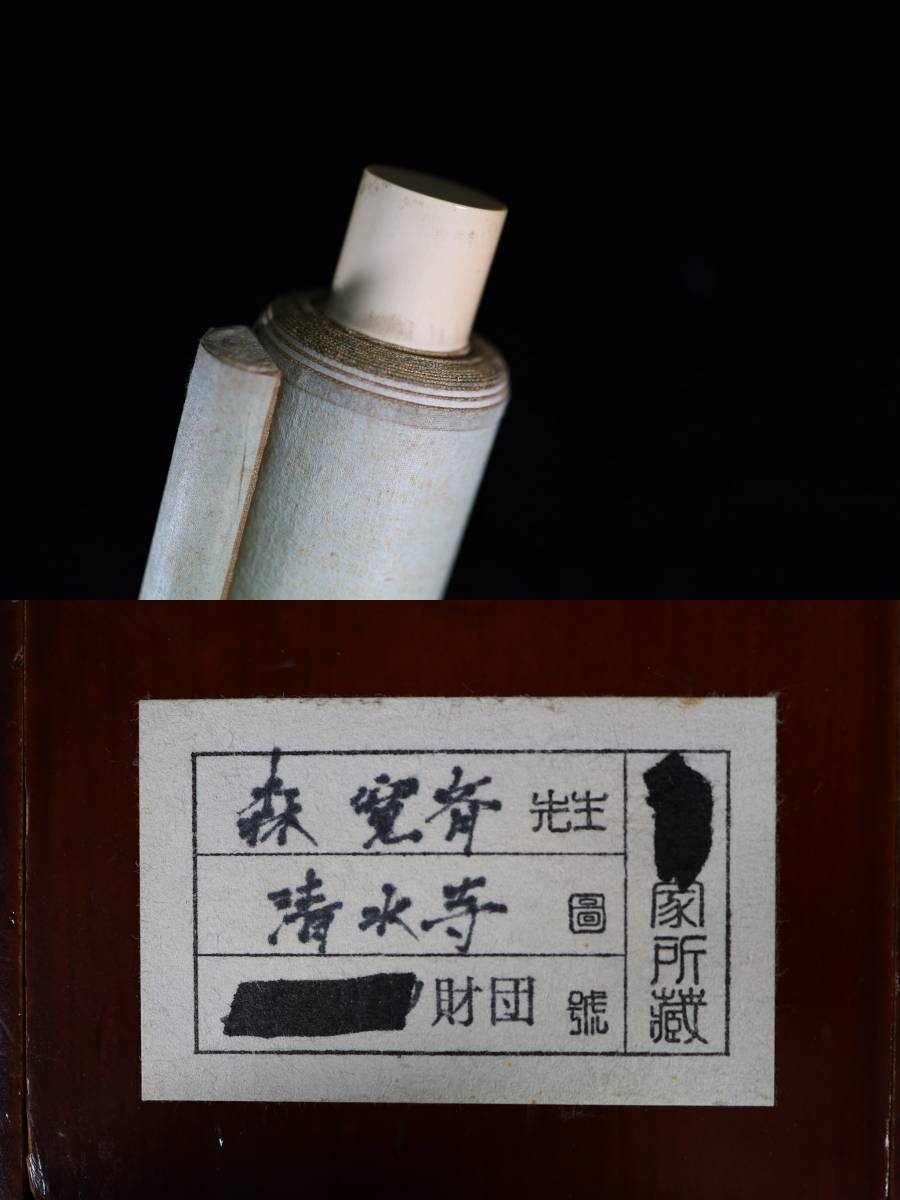 森寛斎先生
清水寺圖
財団號
家所藏